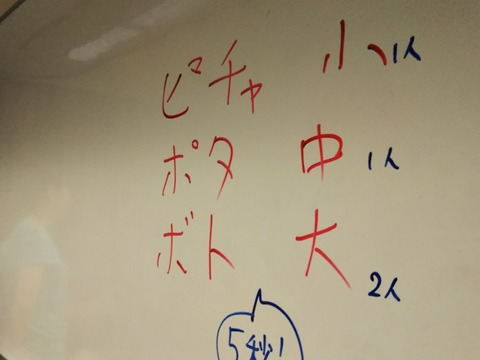 ピチャ 小 1人
ポタ 中 1人
ボト 大 2人
5秒!